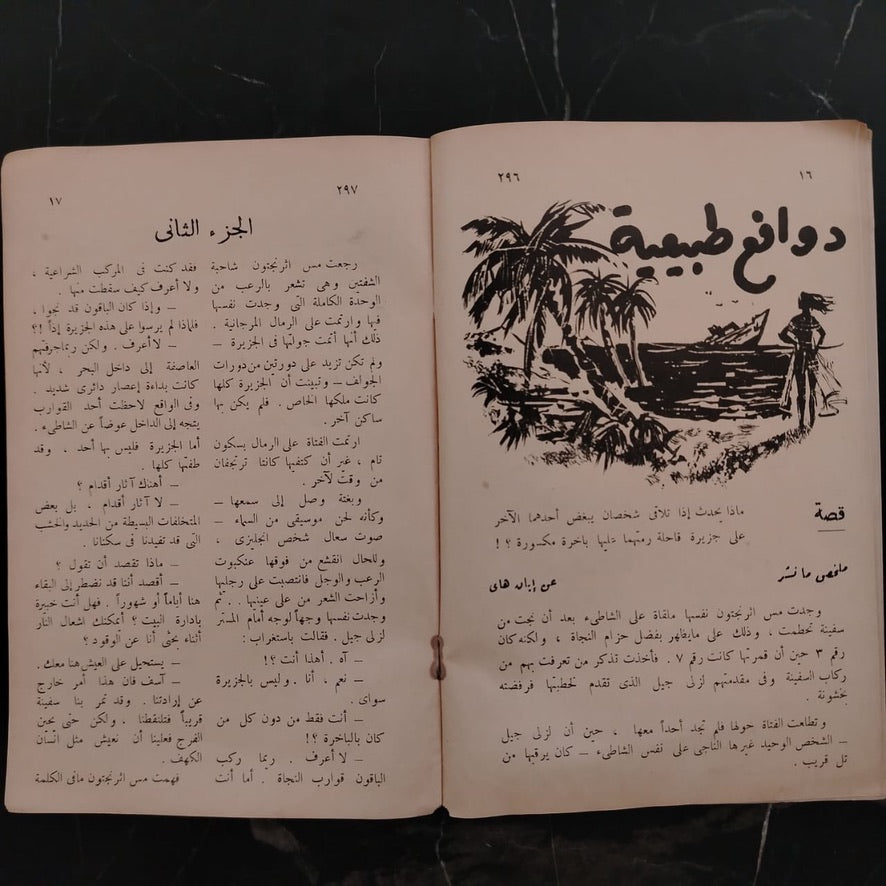 ١٦
٢٩٦
دوافع طبيعية
قصة
ماذا يحدث إذا تلاقى شخصان يبغض أحدهما الآخر
على جزيرة قاحلة رمتهما إليها باخرة مكسورة ؟ !
ملخص ما نشر
عن إيان هاى
وجدت مس اثرنجتون نفسها ملقاة على الشاطىء بعد أن نجت من
سفينة تحطمت ، وذلك على مايظهر بفضل حزام النجاة ، ولكنه كان
رقم ٣ حين أن قمرتها كانت رقم ٧ . فأخذت تذكر من تعرفت بهم من
ركاب السفينة وفى مقدمتهم لزلى جيل الذى تقدم لخطبتها فرفضته
بخشونة .
وتطلعت الفتاة حولها فلم تجد أحداً معها ، حين أن لزلى جيل
– الشخص الوحيد غيرها الناجى على نفس الشاطىء – كان يرقبها من
تل قريب .
٢٩٧
١٧
الجزء الثانى
رجعت مس اثرنجتون شاحبة
الشفتين وهى تشعر بالرعب من
الوحدة الكاملة التى وجدت نفسها
فيها وارتمت على الرمال المرجانية .
ذلك أنها أتمت جولتها فى الجزيرة –
ولم تكن تزيد على دورتين من دورات
الجولف – وتبينت أن الجزيرة كلها
كانت ملكها الخاص . فلم يكن بها
ساكن آخر .
ارتمت الفتاة على الرمال بسكون
تام ، غير أن كتفيها كانتا ترتجفان
من وقت لآخر .
وبغتة وصل إلى سمعها –
وكأنه لحن موسيقى من السماء –
صوت سعال شخص انجليزى ،
وللحال انقشع من فوقها عنكبوت
الرعب والوجل فانتصبت على رجليها
وأزاحت الشعر من على عينيها . . ثم
وجدت نفسها وجهاً لوجه أمام المستر
لزلى جيل . فقالت باستغراب :
– آه . أهذا أنت ؟!
– نعم ، أنا . وليس بالجزيرة
سواى .
– أنت فقط من دون كل من
كان بالباخرة ؟!
– لا أعرف . ربما ركب
الباقون قوارب النجاة . أما أنت
فقد كنت فى المركب الشراعية ،
ولا أعرف كيف سقطت منها .
– وإذا كان الباقون قد نجوا ،
فلماذا لم يرسوا على هذه الجزيرة إذاً !؟
– لا أعرف . ولكن ربما جرفتهم
العاصفة إلى داخل البحر ، لأنها
كانت بداءة إعصار دائرى شديد .
وفى الواقع لاحظت أحد القوارب
يتجه إلى الداخل عوضاً عن الشاطىء .
أما الجزيرة فليس بها أحد ، وقد
طفتها كلها .
– أهناك آثار أقدام ؟
– لا آثار أقدام ، بل بعض
المتخلفات البسيطة من الحديد والخشب
التى قد تفيدنا فى سكنانا .
– ماذا تقصد أن تقول ؟
– أقصد أننا قد نضطر إلى البقاء
هنا أياماً أو شهوراً . فهل أنت خبيرة
بادارة البيت ؟ أيمكنك اشعال النار
أثناء بحثى أنا عن الوقود ؟
– يستحيل على العيش هنا معك .
– آسف فان هذا أمر خارج
عن إرادتنا . وقد تمر بنا سفينة
قريباً فتلتقطنا ، ولكن حتى يحين
الفرج فعلينا أن نعيش مثل انسان
الكهف .
فهمت مس اثرنجتون مافى الكلمة